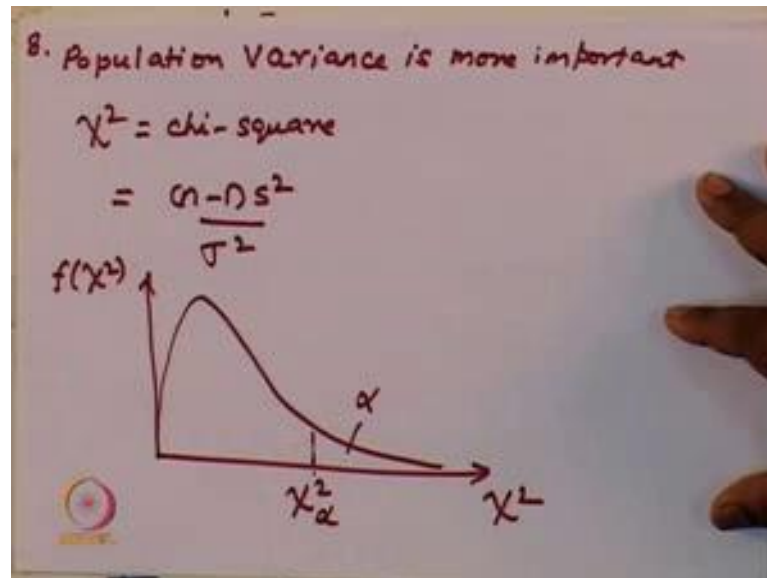 8. Population Variance is more important
χ² = chi-square
= (n-1)s²
σ²
f(χ²)
α
χ²α
χ²